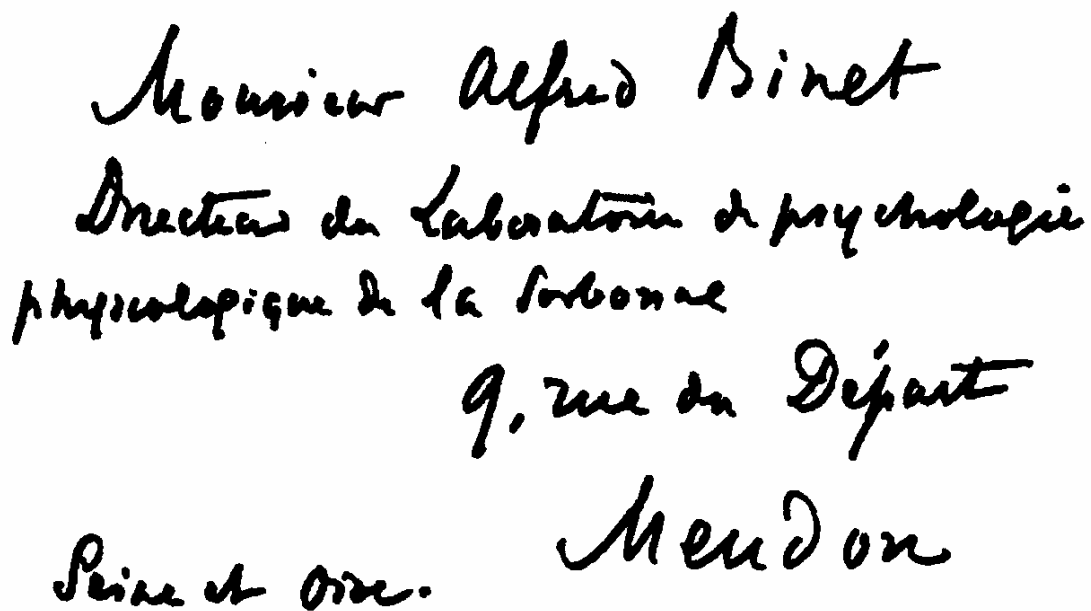 Monsieur Alfred Binet
Directeur du Laboratoire de psychologie
physiologique de la Sorbonne
9, rue du Départ
Meudon
Seine et Oise.